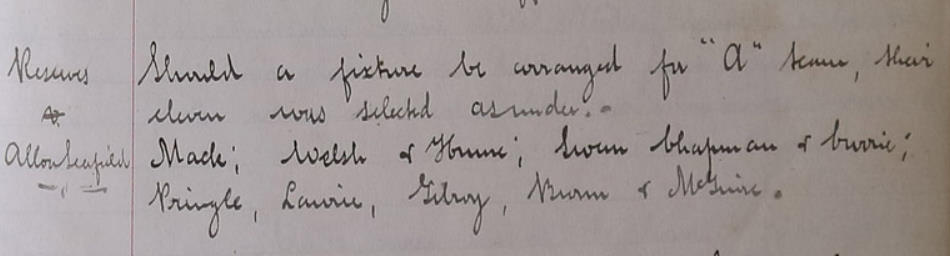 Reserves Should a fixture be arranged for "A" team, their
v. eleven was selected as under. -
Mack; Welsh & Hume; Swan Chapman & Currie;
Pringle, Lawrie, Gilroy, Brown & McGuire.